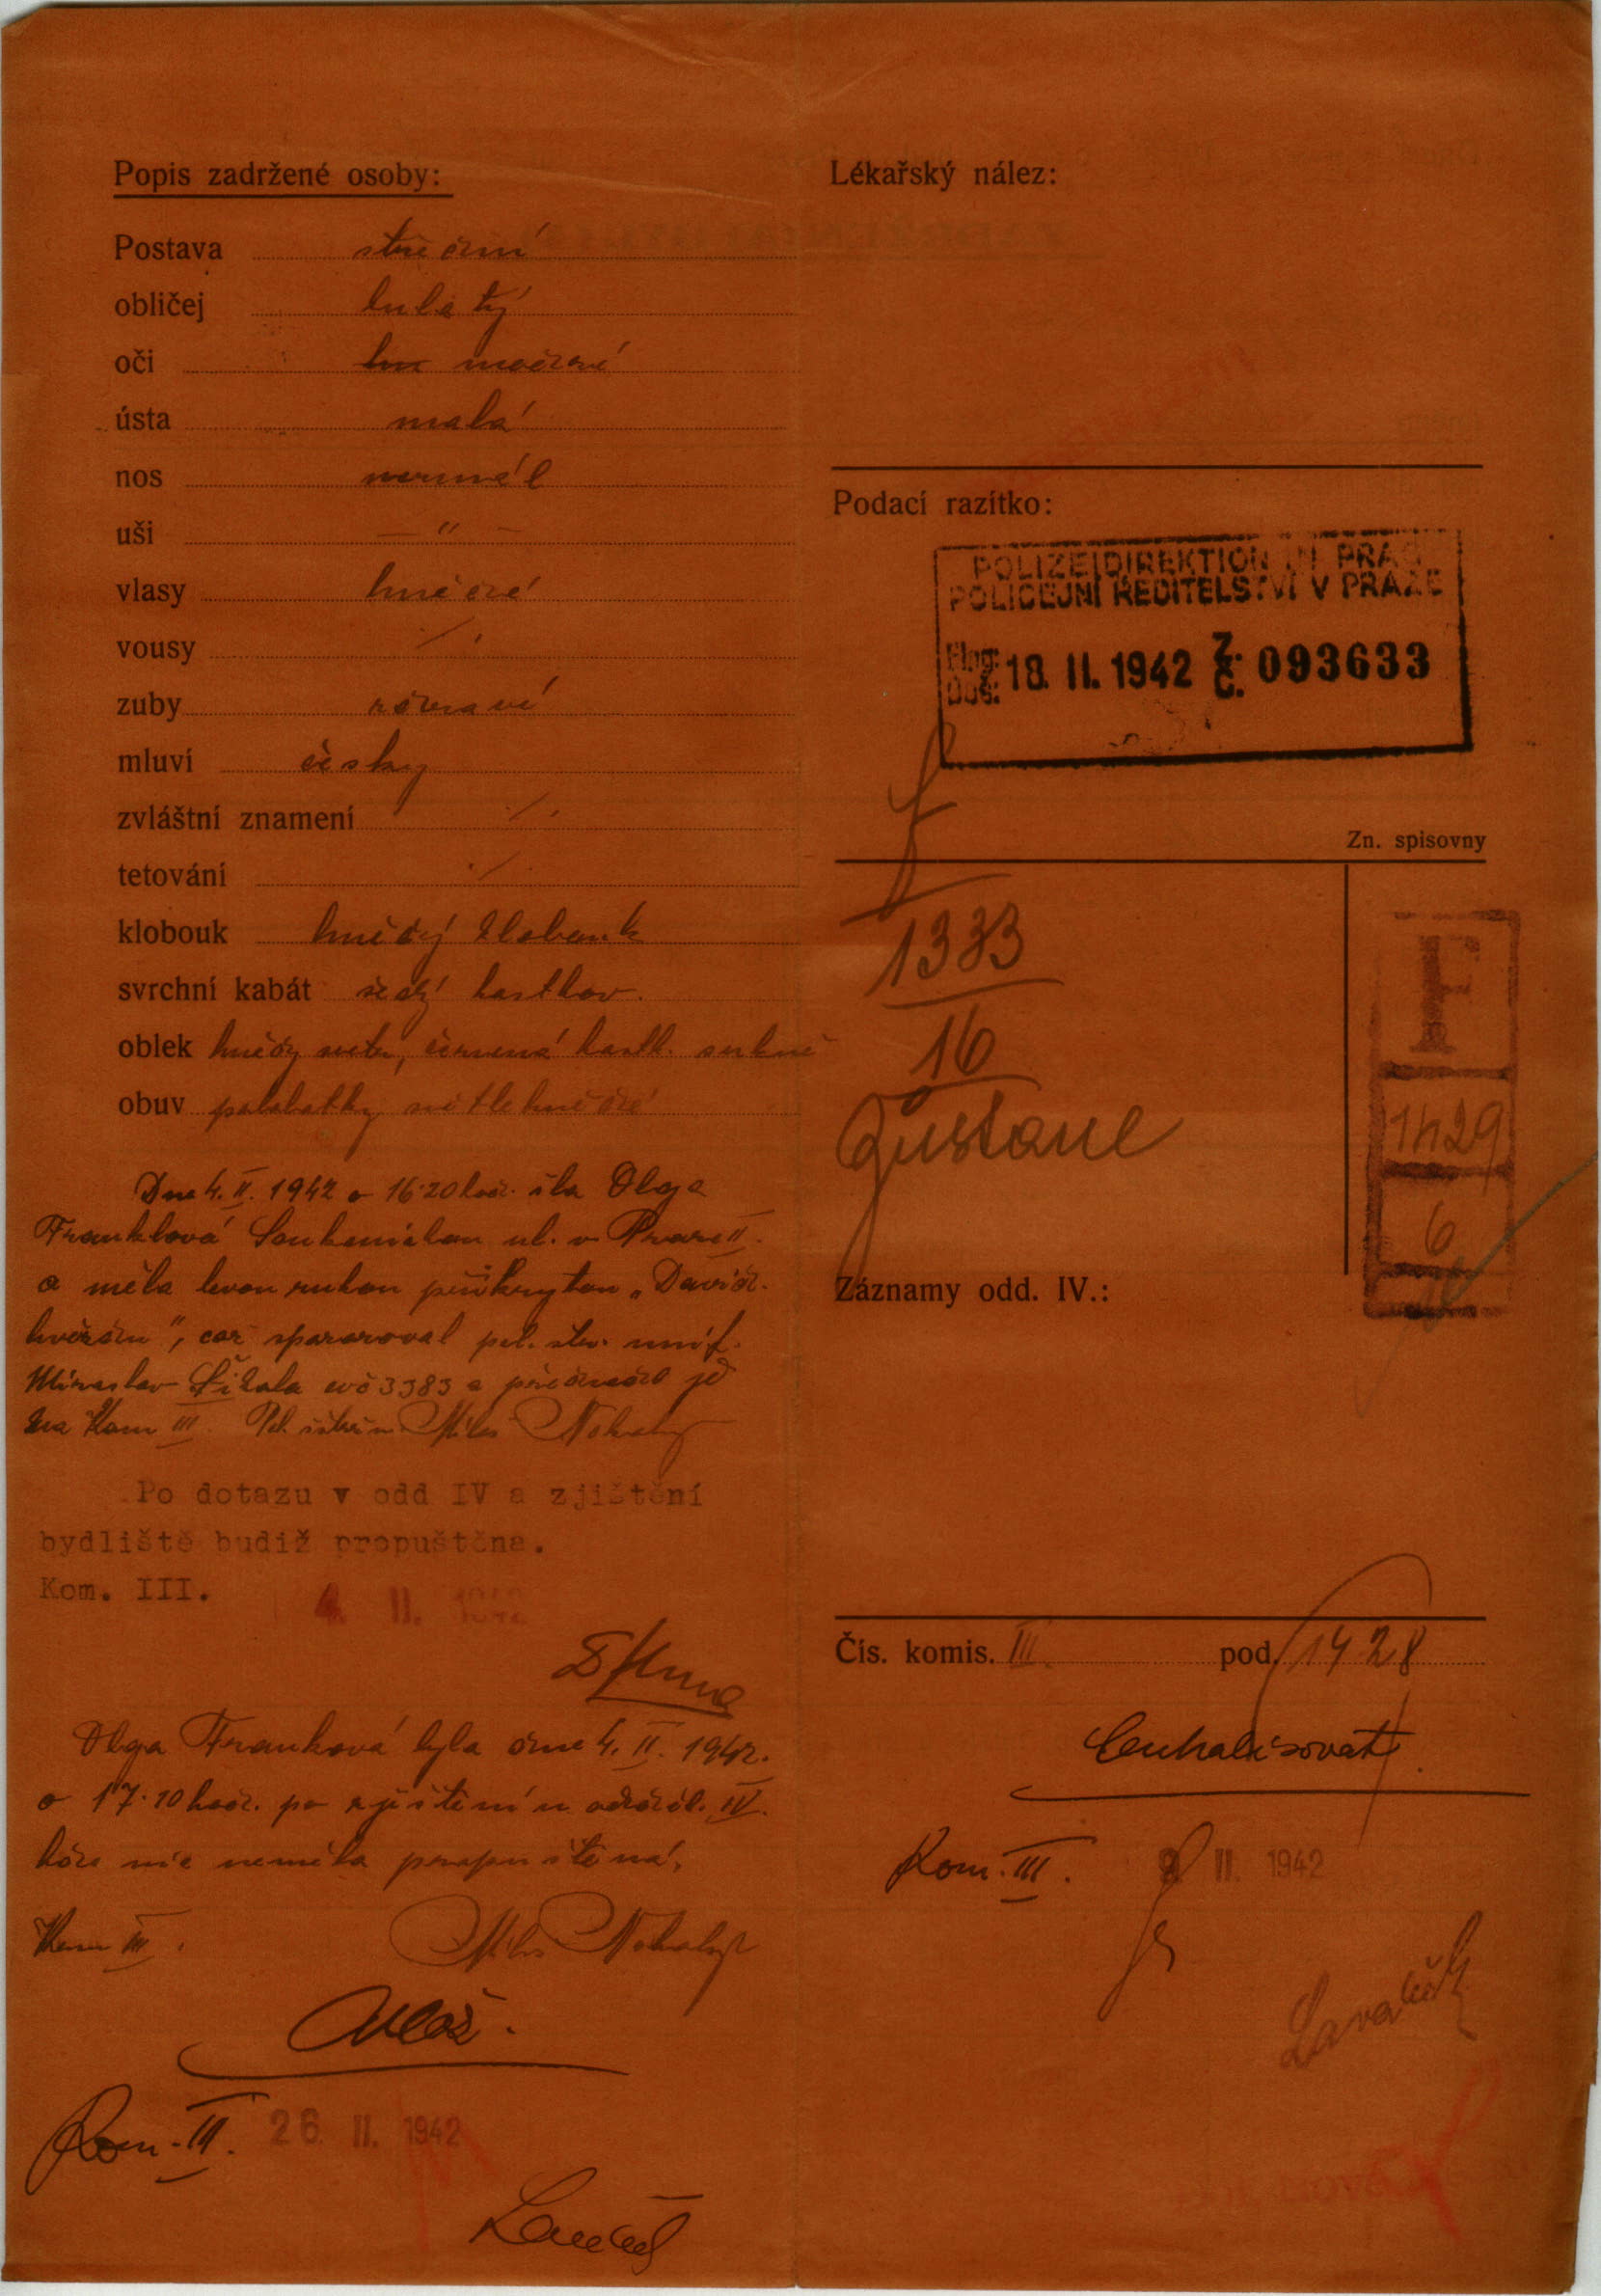 Popis zadržené osoby:
Postava střední
obličej kulatý
oči modré
ústa malá
nos normál
uši — " —
vlasy hnědé
vousy ./.
zuby zdravé
mluví česky
zvláštní znamení ./.
tetování ./.
klobouk hnědý klobouk
svrchní kabát šedý kostkov.
oblek hnědý svetr, červená kostk. sukně
obuv polobotky světlehnědé
Dne 4. II. 1942 o 16·20 hod. šla Olga
Franklová Soukenickou ul. v Praze II.
a měla levou rukou přikrytou „David.
hvězdu", což zpozoroval pol. stržm. unif.
Miroslav evč 3383 a předvedl ji
na Kom III. Pol. Miloš
Po dotazu v odd IV a zjištění
bydliště budiž propuštěna.
Kom. III. 4. II. 1942
Olga Franková byla dne 4. II. 1942.
o 17·10 hod. po zjištění u odděl. IV.
kde nic neměla propuštěna.
Kom III. Miloš
Kom. III. 26. II. 1942
Lékařský nález:
Podací razítko:
POLIZEIDIREKTION IN PRAG
POLICEJNÍ ŘEDITELSTVÍ V PRAZE
Eing: Doš: 18. II. 1942 Z. Č. 093633
Zn. spisovny
1383
16
Zůstane
F
1429
6
Záznamy odd. IV.:
Čís. komis. III. pod. 1428
Centralisovati.
Kom. III. 9. II. 1942